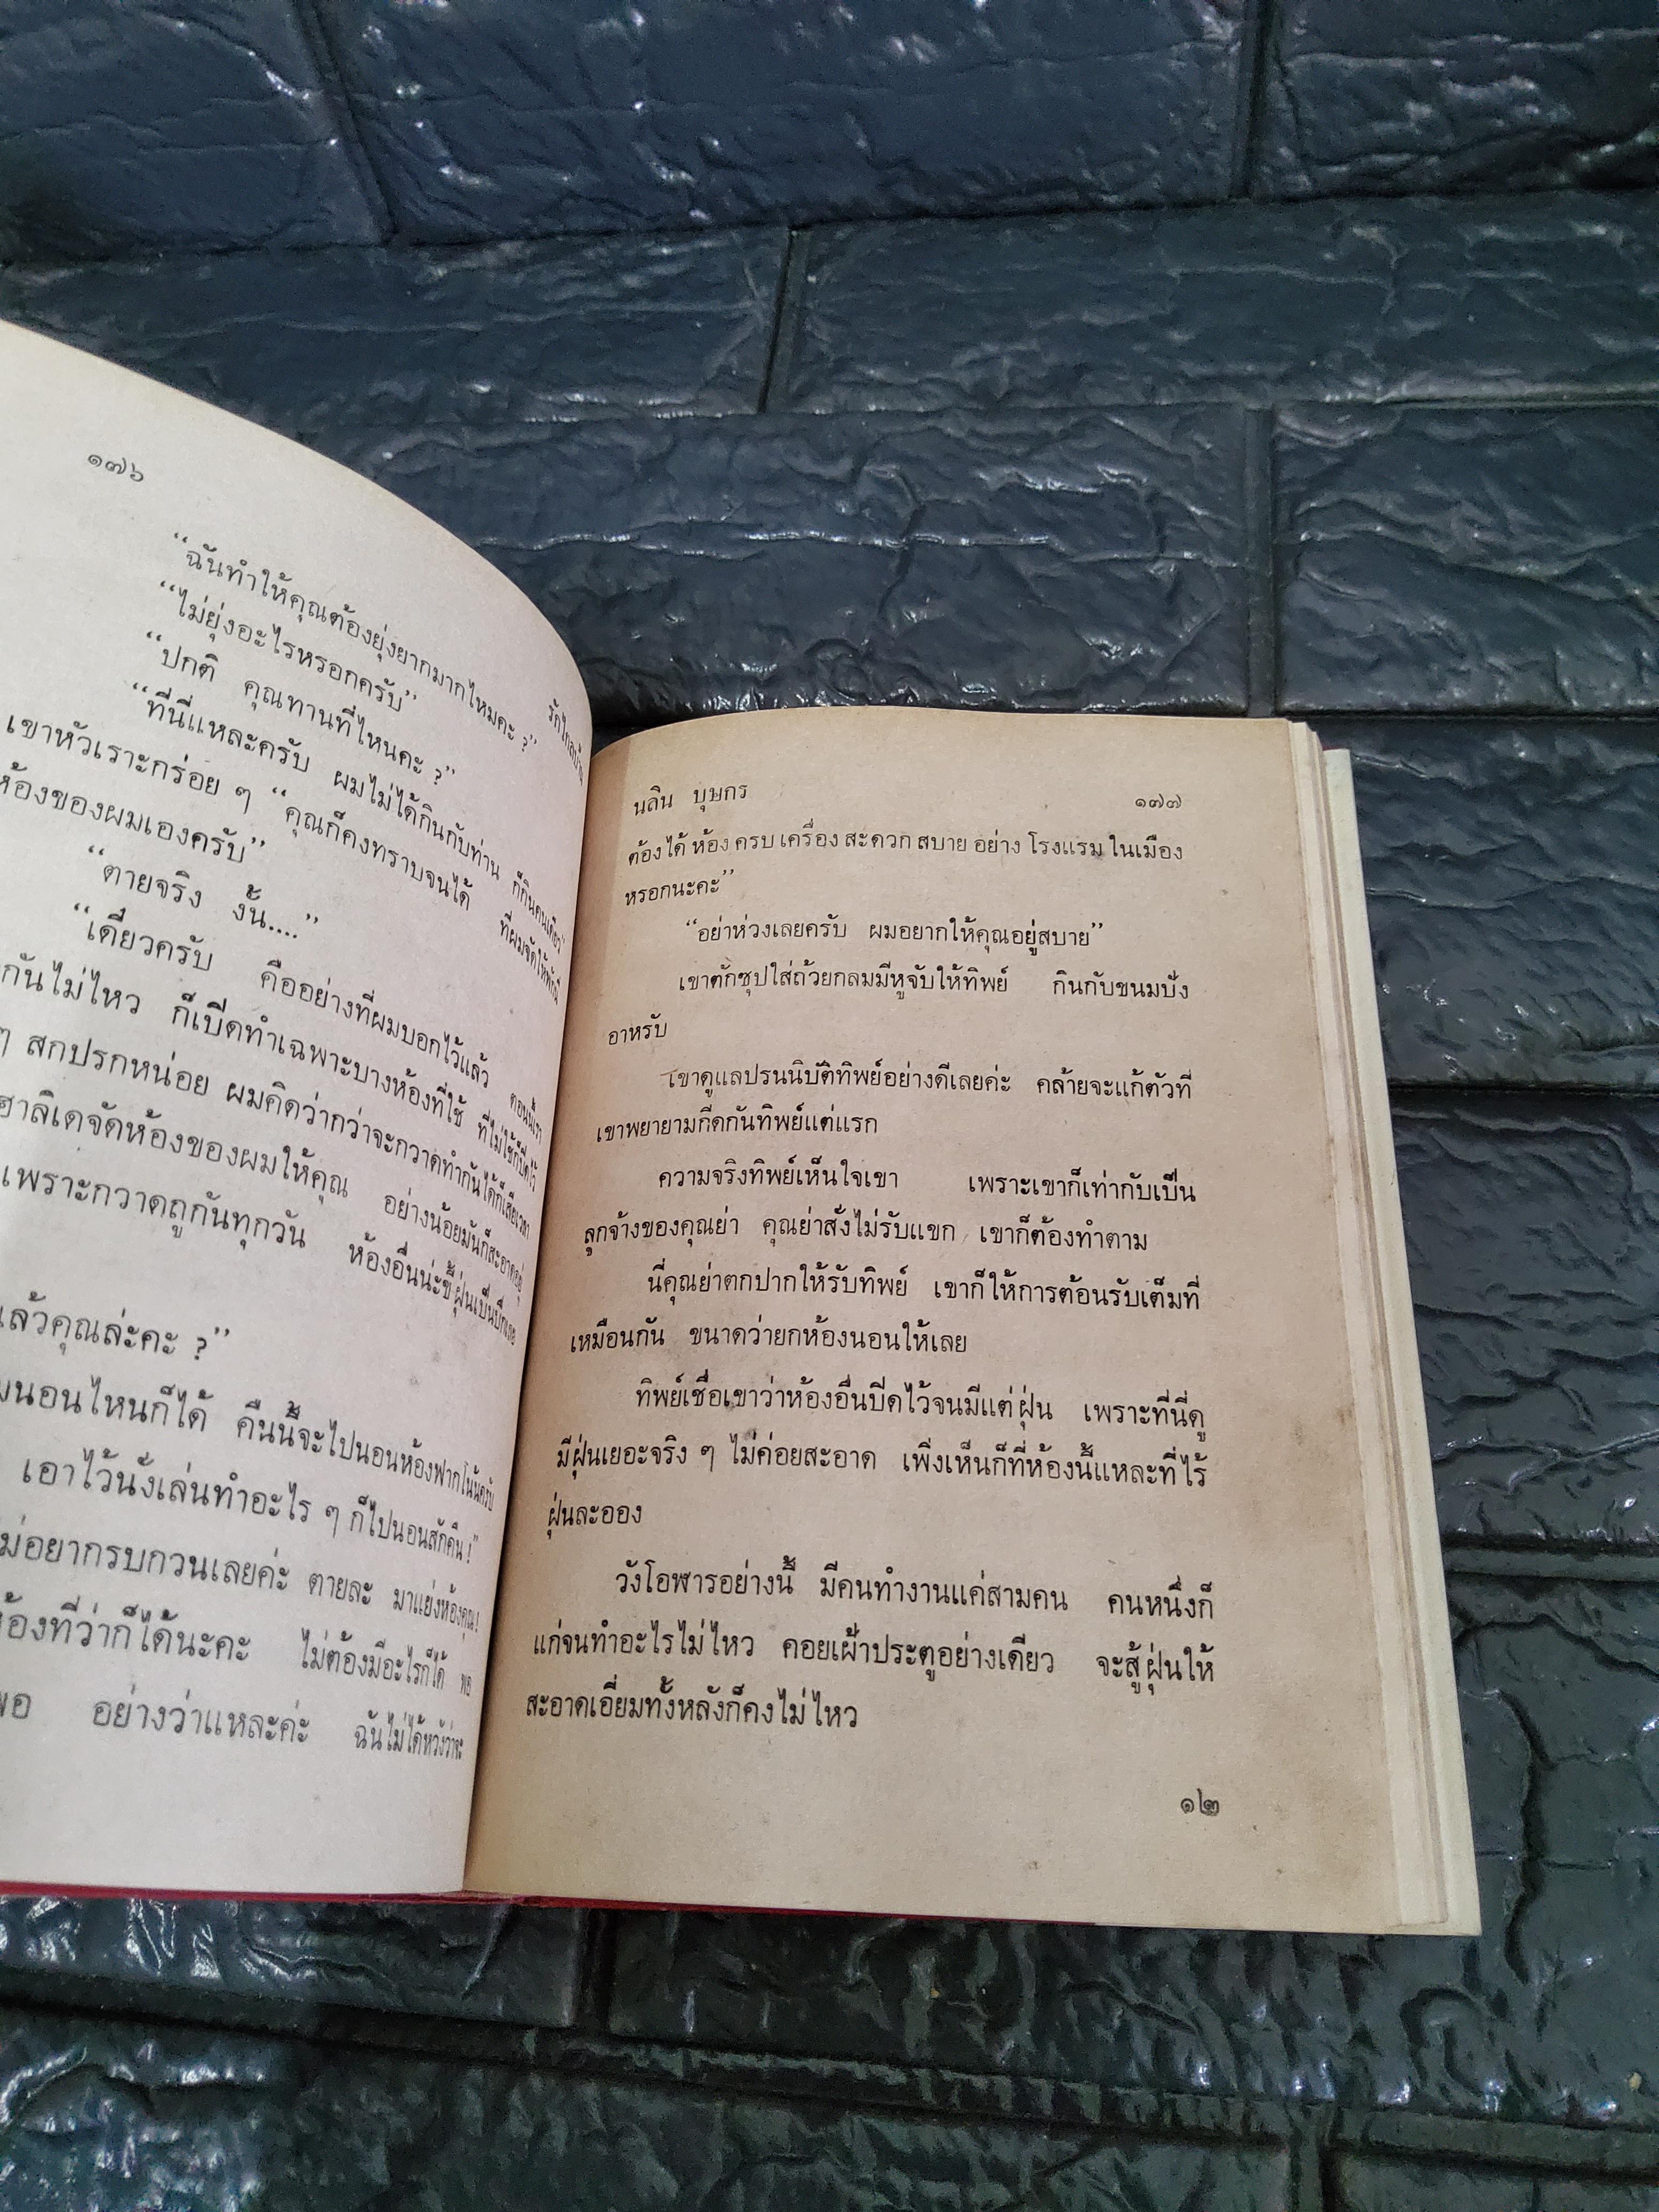 ๑๗๖
รักไกลบ้าน
“ฉันทำให้คุณต้องยุ่งยากมากไหมคะ ?”
“ไม่ยุ่งอะไรหรอกครับ”
“ปกติ คุณทานที่ไหนคะ ?”
“ที่นี่แหละครับ ผมไม่ได้กินกับท่าน ก็กินคนเดียว”
เขาหัวเราะกร่อย ๆ “คุณก็คงทราบจนได้ ที่ผมจัดให้พักนี่
ห้องของผมเองครับ”
“ตายจริง งั้น....”
“เดี๋ยวครับ คืออย่างที่ผมบอกไว้แล้ว ตอนนี้เรา
กันไม่ไหว ก็เปิดทำเฉพาะบางห้องที่ใช้ ที่ไม่ใช้ก็ปิดไว้
ๆ สกปรกหน่อย ผมคิดว่ากว่าจะกวาดทำกันได้ก็เสียเวลา
ฮาลิเดจัดห้องของผมให้คุณ อย่างน้อยมันก็สะอาดอยู่
เพราะกวาดถูกันทุกวัน ห้องอื่นน่ะขี้ฝุ่นเป็นปึกเลย
แล้วคุณล่ะคะ ?”
นอนไหนก็ได้ คืนนี้จะไปนอนห้องฟากโน้นครับ
เอาไว้นั่งเล่นทำอะไร ๆ ก็ไปนอนสักคืน !”
ไม่อยากรบกวนเลยค่ะ ตายละ มาแย่งห้องคุณ !
ห้องที่ว่าก็ได้นะคะ ไม่ต้องมีอะไรก็ได้ พอ
พอ อย่างว่าแหละค่ะ ฉันไม่ได้หวังว่าจะ
นลิน บุษกร ๑๗๗
ต้องได้ห้องครบเครื่องสะดวกสบายอย่างโรงแรมในเมือง
หรอกนะคะ”
“อย่าห่วงเลยครับ ผมอยากให้คุณอยู่สบาย”
เขาตักซุปใส่ถ้วยกลมมีหูจับให้ทิพย์ กินกับขนมปัง
อาหรับ
เขาดูแลปรนนิบัติทิพย์อย่างดีเลยค่ะ คล้ายจะแก้ตัวที่
เขาพยายามกีดกันทิพย์แต่แรก
ความจริงทิพย์เห็นใจเขา เพราะเขาก็เท่ากับเป็น
ลูกจ้างของคุณย่า คุณย่าสั่งไม่รับแขก เขาก็ต้องทำตาม
นี่คุณย่าตกปากให้รับทิพย์ เขาก็ให้การต้อนรับเต็มที่
เหมือนกัน ขนาดว่ายกห้องนอนให้เลย
ทิพย์เชื่อเขาว่าห้องอื่นปิดไว้จนมีแต่ฝุ่น เพราะที่นี่ดู
มีฝุ่นเยอะจริง ๆ ไม่ค่อยสะอาด เพิ่งเห็นก็ที่ห้องนี้แหละที่ไร้
ฝุ่นละออง
วังโอฬารอย่างนี้ มีคนทำงานแค่สามคน คนหนึ่งก็
แก่จนทำอะไรไม่ไหว คอยเฝ้าประตูอย่างเดียว จะสู้ฝุ่นให้
สะอาดเอี่ยมทั้งหลังก็คงไม่ไหว
๑๒